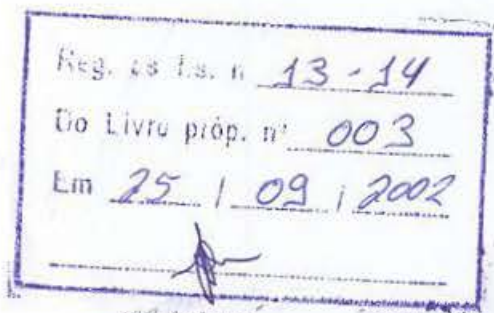 Reg. às fs. n 13-14
Do Livro próp. nº 003
Em 25 / 09 / 2002